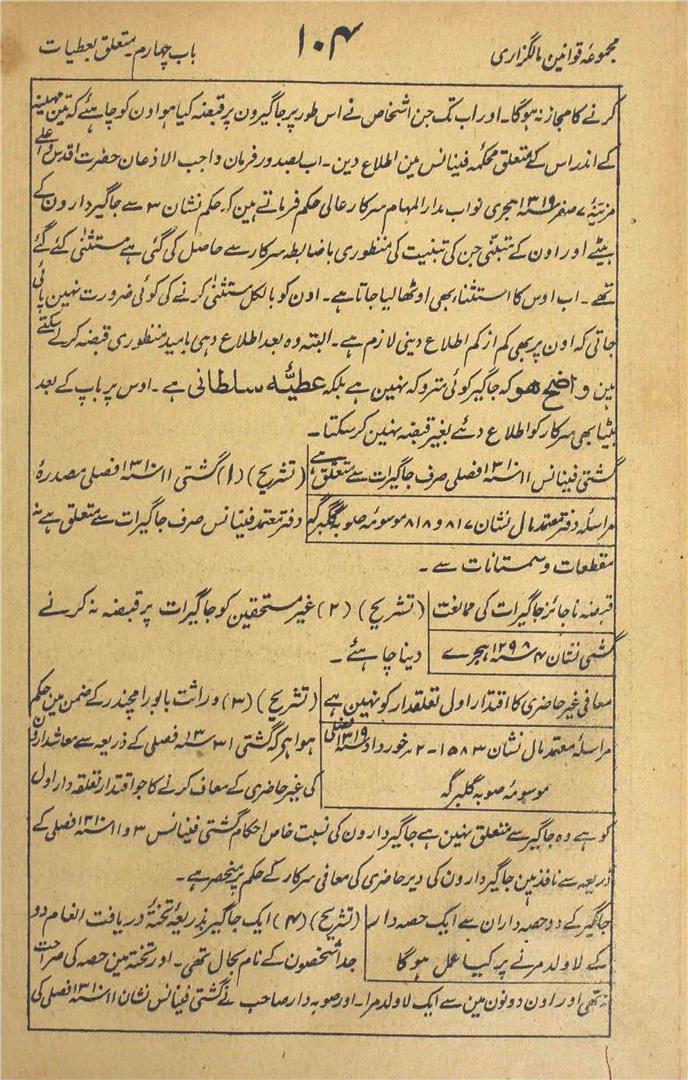 مجموعۂ قوانین مالگزاری
۱۰۴
باب چہارم۔ متعلق بعطیات
کرنے کا مجاز نہ ہوگا۔ اور اب تک جن اشخاص نے اس طور پر جاگیرون پر قبضہ کیا ہو اون کو چاہئے کہ تین مہینے
کے اندر اس کے متعلق محکمہ فینانس مین اطلاع دین۔ اب بصدور فرمان واجب الاذعان حضرت اقدس و اعلے
مزینۂ ۷ صفر ۱۳۱۹ سنہ ہجری نواب مدار المہام سرکار عالی حکم فرماتے ہین کہ حکم نشان ۳ سے جاگیردارون کے
بیٹے اور اون کے تبنّی جن کی تبنیت کی منظوری باضابطہ سرکار سے حاصل کی گئی ہے مستثنٰی کئے گئے
تھے۔ اب اوس کا استثناء بھی اوٹھا لیا جاتا ہے۔ اون کو بالکل مستثنٰی کرنے کی کوئی ضرورت نہین پائی
جاتی کہ اون پر بھی کم از کم اطلاع دینی لازم ہے۔ البتہ وہ بعد اطلاع دہی بامید منظوری قبضہ کر لے سکتے
ہین واضح ہو کہ جاگیر کوئی متروکہ نہین ہے بلکہ عطیّہ سلطانی ہے۔ اوس پر باپ کے بعد
بیٹا بھی سرکار کو اطلاع دئے بغیر قبضہ نہین کر سکتا۔
گشتی فینانس ۱۱ سنہ ۱۳۱۰ فصلی صرف جاگیرات سے متعلق ہے
مراسلہ دفتر معتمد مال نشان ۸۱۷ و ۸۱۸ موسومہ صوبہ گلبرگہ
(تشریح) (۱) گشتی ۱۱ سنہ ۱۳۱۰ فصلی مصدرۂ
دفتر معتمد فینانس صرف جاگیرات سے متعلق ہے نہ
مقطعات و سمستانات سے۔
قبضہ ناجائز جاگیرات کی ممانعت
گشتی نشان ۴ سنہ ۱۲۹۸ ہجرے
(تشریح) (۲) غیر مستحقین کو جاگیرات پر قبضہ نہ کرنے
دینا چاہئے۔
معافی غیر حاضری کا اقتدار اول تعلقدار کو نہین ہے
مراسلہ معتمد مال نشان ۱۵۸۳ - ۲ مہر خورداد سنہ ۱۳۱۹ فصلی
موسومہ صوبہ گلبرگہ
(تشریح) (۳) وراثت بالو رامچندر کے ضمن مین حکم
ہوا ہے کہ گشتی ۳۱ سنہ ۱۳ فصلی کے ذریعہ سے معاشدارون
کی غیر حاضری کے معاف کرنے کا جو اقتدار تعلقہ دار اول
کو ہے وہ جاگیر سے متعلق نہین ہے جاگیردارون کی نسبت خاص احکام گشتی فینانس ۳ و ۱۱ سنہ ۱۳۱۰ فصلی کے
ذریعہ سے نافذ ہین جاگیردارون کی دیر حاضری کی معافی سرکار کے حکم پر منحصر ہے۔
جاگیر کے دو حصہ داران سے ایک حصہ دار
کے لاولد مرنے پر کیا عمل ہوگا
(تشریح) (۴) ایک جاگیر بذریعہ تختۂ دریافت انعام دو
جدا شخصون کے نام بحال تھی۔ اور تختہ مین حصہ کی صراحت
نہ تھی اور اون دونون مین سے ایک لاولد مرا۔ اور صوبہ دار صاحب نے گشتی فینانس نشان ۱۱ سنہ ۱۳۱۰ فصلی کی